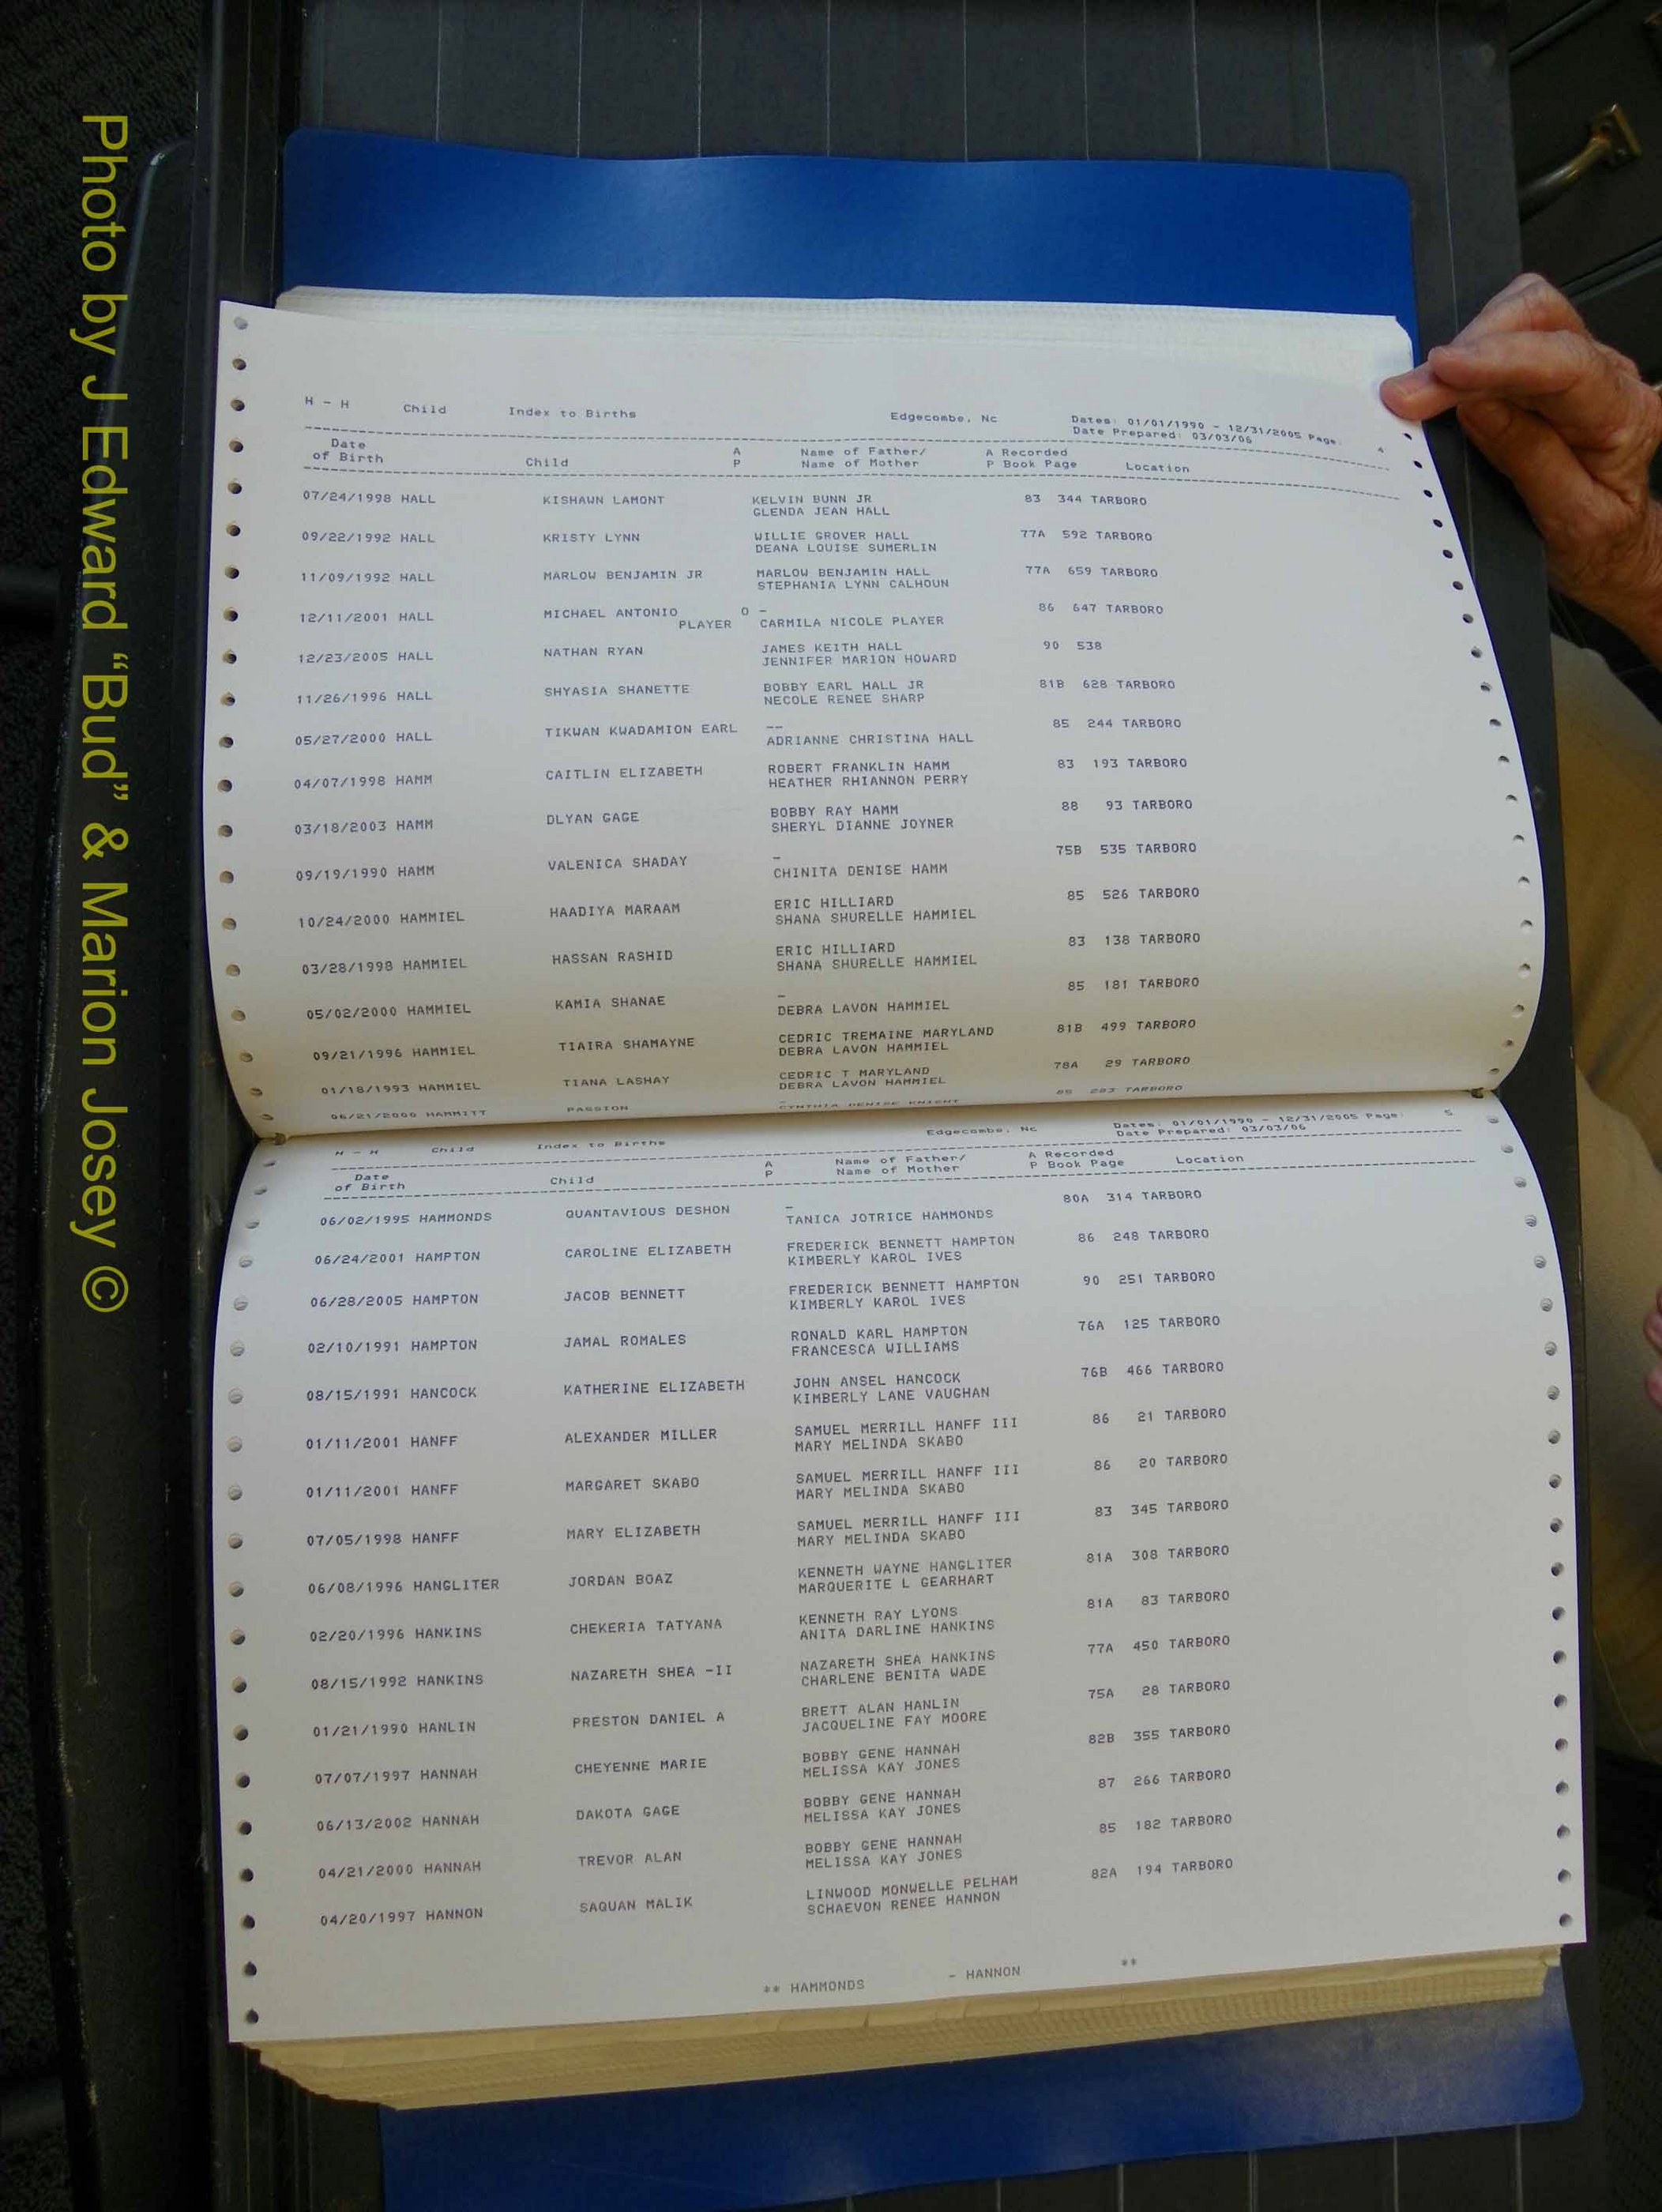 H - H Child Index to Births Edgecombe, Nc Dates: 01/01/1990 - 12/31/2005 Page: 4
Date Prepared: 03/03/06
Date A Name of Father/ A Recorded
of Birth Child P Name of Mother P Book Page Location
07/24/1998 HALL KISHAWN LAMONT KELVIN BUNN JR 83 344 TARBORO
GLENDA JEAN HALL
09/22/1992 HALL KRISTY LYNN WILLIE GROVER HALL 77A 592 TARBORO
DEANA LOUISE SUMERLIN
11/09/1992 HALL MARLOW BENJAMIN JR MARLOW BENJAMIN HALL 77A 659 TARBORO
STEPHANIA LYNN CALHOUN
12/11/2001 HALL MICHAEL ANTONIO O - 86 647 TARBORO
PLAYER CARMILA NICOLE PLAYER
12/23/2005 HALL NATHAN RYAN JAMES KEITH HALL 90 538
JENNIFER MARION HOWARD
11/26/1996 HALL SHYASIA SHANETTE BOBBY EARL HALL JR 81B 628 TARBORO
NECOLE RENEE SHARP
05/27/2000 HALL TIKWAN KWADAMION EARL -- 85 244 TARBORO
ADRIANNE CHRISTINA HALL
04/07/1998 HAMM CAITLIN ELIZABETH ROBERT FRANKLIN HAMM 83 193 TARBORO
HEATHER RHIANNON PERRY
03/18/2003 HAMM DLYAN GAGE BOBBY RAY HAMM 88 93 TARBORO
SHERYL DIANNE JOYNER
09/19/1990 HAMM VALENICA SHADAY - 75B 535 TARBORO
CHINITA DENISE HAMM
10/24/2000 HAMMIEL HAADIYA MARAAM ERIC HILLIARD 85 526 TARBORO
SHANA SHURELLE HAMMIEL
03/28/1998 HAMMIEL HASSAN RASHID ERIC HILLIARD 83 138 TARBORO
SHANA SHURELLE HAMMIEL
05/02/2000 HAMMIEL KAMIA SHANAE - 85 181 TARBORO
DEBRA LAVON HAMMIEL
09/21/1996 HAMMIEL TIAIRA SHAMAYNE CEDRIC TREMAINE MARYLAND 81B 499 TARBORO
DEBRA LAVON HAMMIEL
01/18/1993 HAMMIEL TIANA LASHAY CEDRIC T MARYLAND 78A 29 TARBORO
DEBRA LAVON HAMMIEL
06/21/2000 HAMMITT PASSION - 85 283 TARBORO
CYNTHIA DENISE KNIGHT
H - H Child Index to Births Edgecombe, Nc Dates: 01/01/1990 - 12/31/2005 Page: 5
Date Prepared: 03/03/06
Date A Name of Father/ A Recorded
of Birth Child P Name of Mother P Book Page Location
06/02/1995 HAMMONDS QUANTAVIOUS DESHON - 80A 314 TARBORO
TANICA JOTRICE HAMMONDS
06/24/2001 HAMPTON CAROLINE ELIZABETH FREDERICK BENNETT HAMPTON 86 248 TARBORO
KIMBERLY KAROL IVES
06/28/2005 HAMPTON JACOB BENNETT FREDERICK BENNETT HAMPTON 90 251 TARBORO
KIMBERLY KAROL IVES
02/10/1991 HAMPTON JAMAL ROMALES RONALD KARL HAMPTON 76A 125 TARBORO
FRANCESCA WILLIAMS
08/15/1991 HANCOCK KATHERINE ELIZABETH JOHN ANSEL HANCOCK 76B 466 TARBORO
KIMBERLY LANE VAUGHAN
01/11/2001 HANFF ALEXANDER MILLER SAMUEL MERRILL HANFF III 86 21 TARBORO
MARY MELINDA SKABO
01/11/2001 HANFF MARGARET SKABO SAMUEL MERRILL HANFF III 86 20 TARBORO
MARY MELINDA SKABO
07/05/1998 HANFF MARY ELIZABETH SAMUEL MERRILL HANFF III 83 345 TARBORO
MARY MELINDA SKABO
06/08/1996 HANGLITER JORDAN BOAZ KENNETH WAYNE HANGLITER 81A 308 TARBORO
MARQUERITE L GEARHART
02/20/1996 HANKINS CHEKERIA TATYANA KENNETH RAY LYONS 81A 83 TARBORO
ANITA DARLINE HANKINS
08/15/1992 HANKINS NAZARETH SHEA -II NAZARETH SHEA HANKINS 77A 450 TARBORO
CHARLENE BENITA WADE
01/21/1990 HANLIN PRESTON DANIEL A BRETT ALAN HANLIN 75A 28 TARBORO
JACQUELINE FAY MOORE
07/07/1997 HANNAH CHEYENNE MARIE BOBBY GENE HANNAH 82B 355 TARBORO
MELISSA KAY JONES
06/13/2002 HANNAH DAKOTA GAGE BOBBY GENE HANNAH 87 266 TARBORO
MELISSA KAY JONES
04/21/2000 HANNAH TREVOR ALAN BOBBY GENE HANNAH 85 182 TARBORO
MELISSA KAY JONES
04/20/1997 HANNON SAQUAN MALIK LINWOOD MONWELLE PELHAM 82A 194 TARBORO
SCHAEVON RENEE HANNON
** HAMMONDS - HANNON **
Photo by J Edward “Bud” & Marion Josey ©